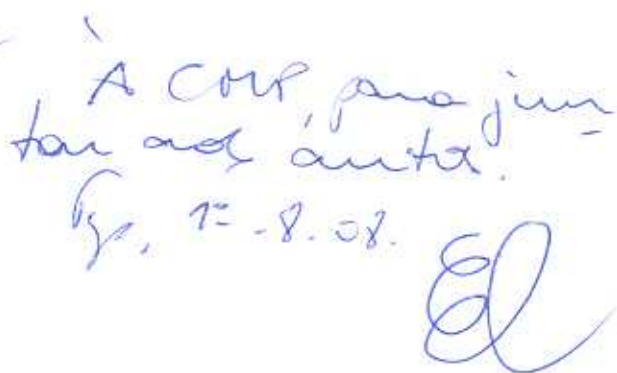 À CMP, para jun-
tar aos autos.
1º-8-08.